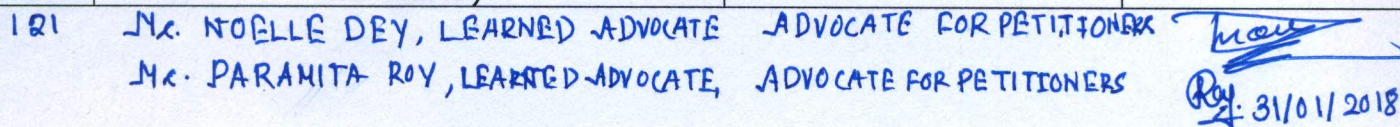 121 Mr. NOELLE DEY, LEARNED ADVOCATE ADVOCATE FOR PETITIONERS
Mr. PARAMITA ROY, LEARNED ADVOCATE, ADVOCATE FOR PETITIONERS
Roy. 31/01/2018